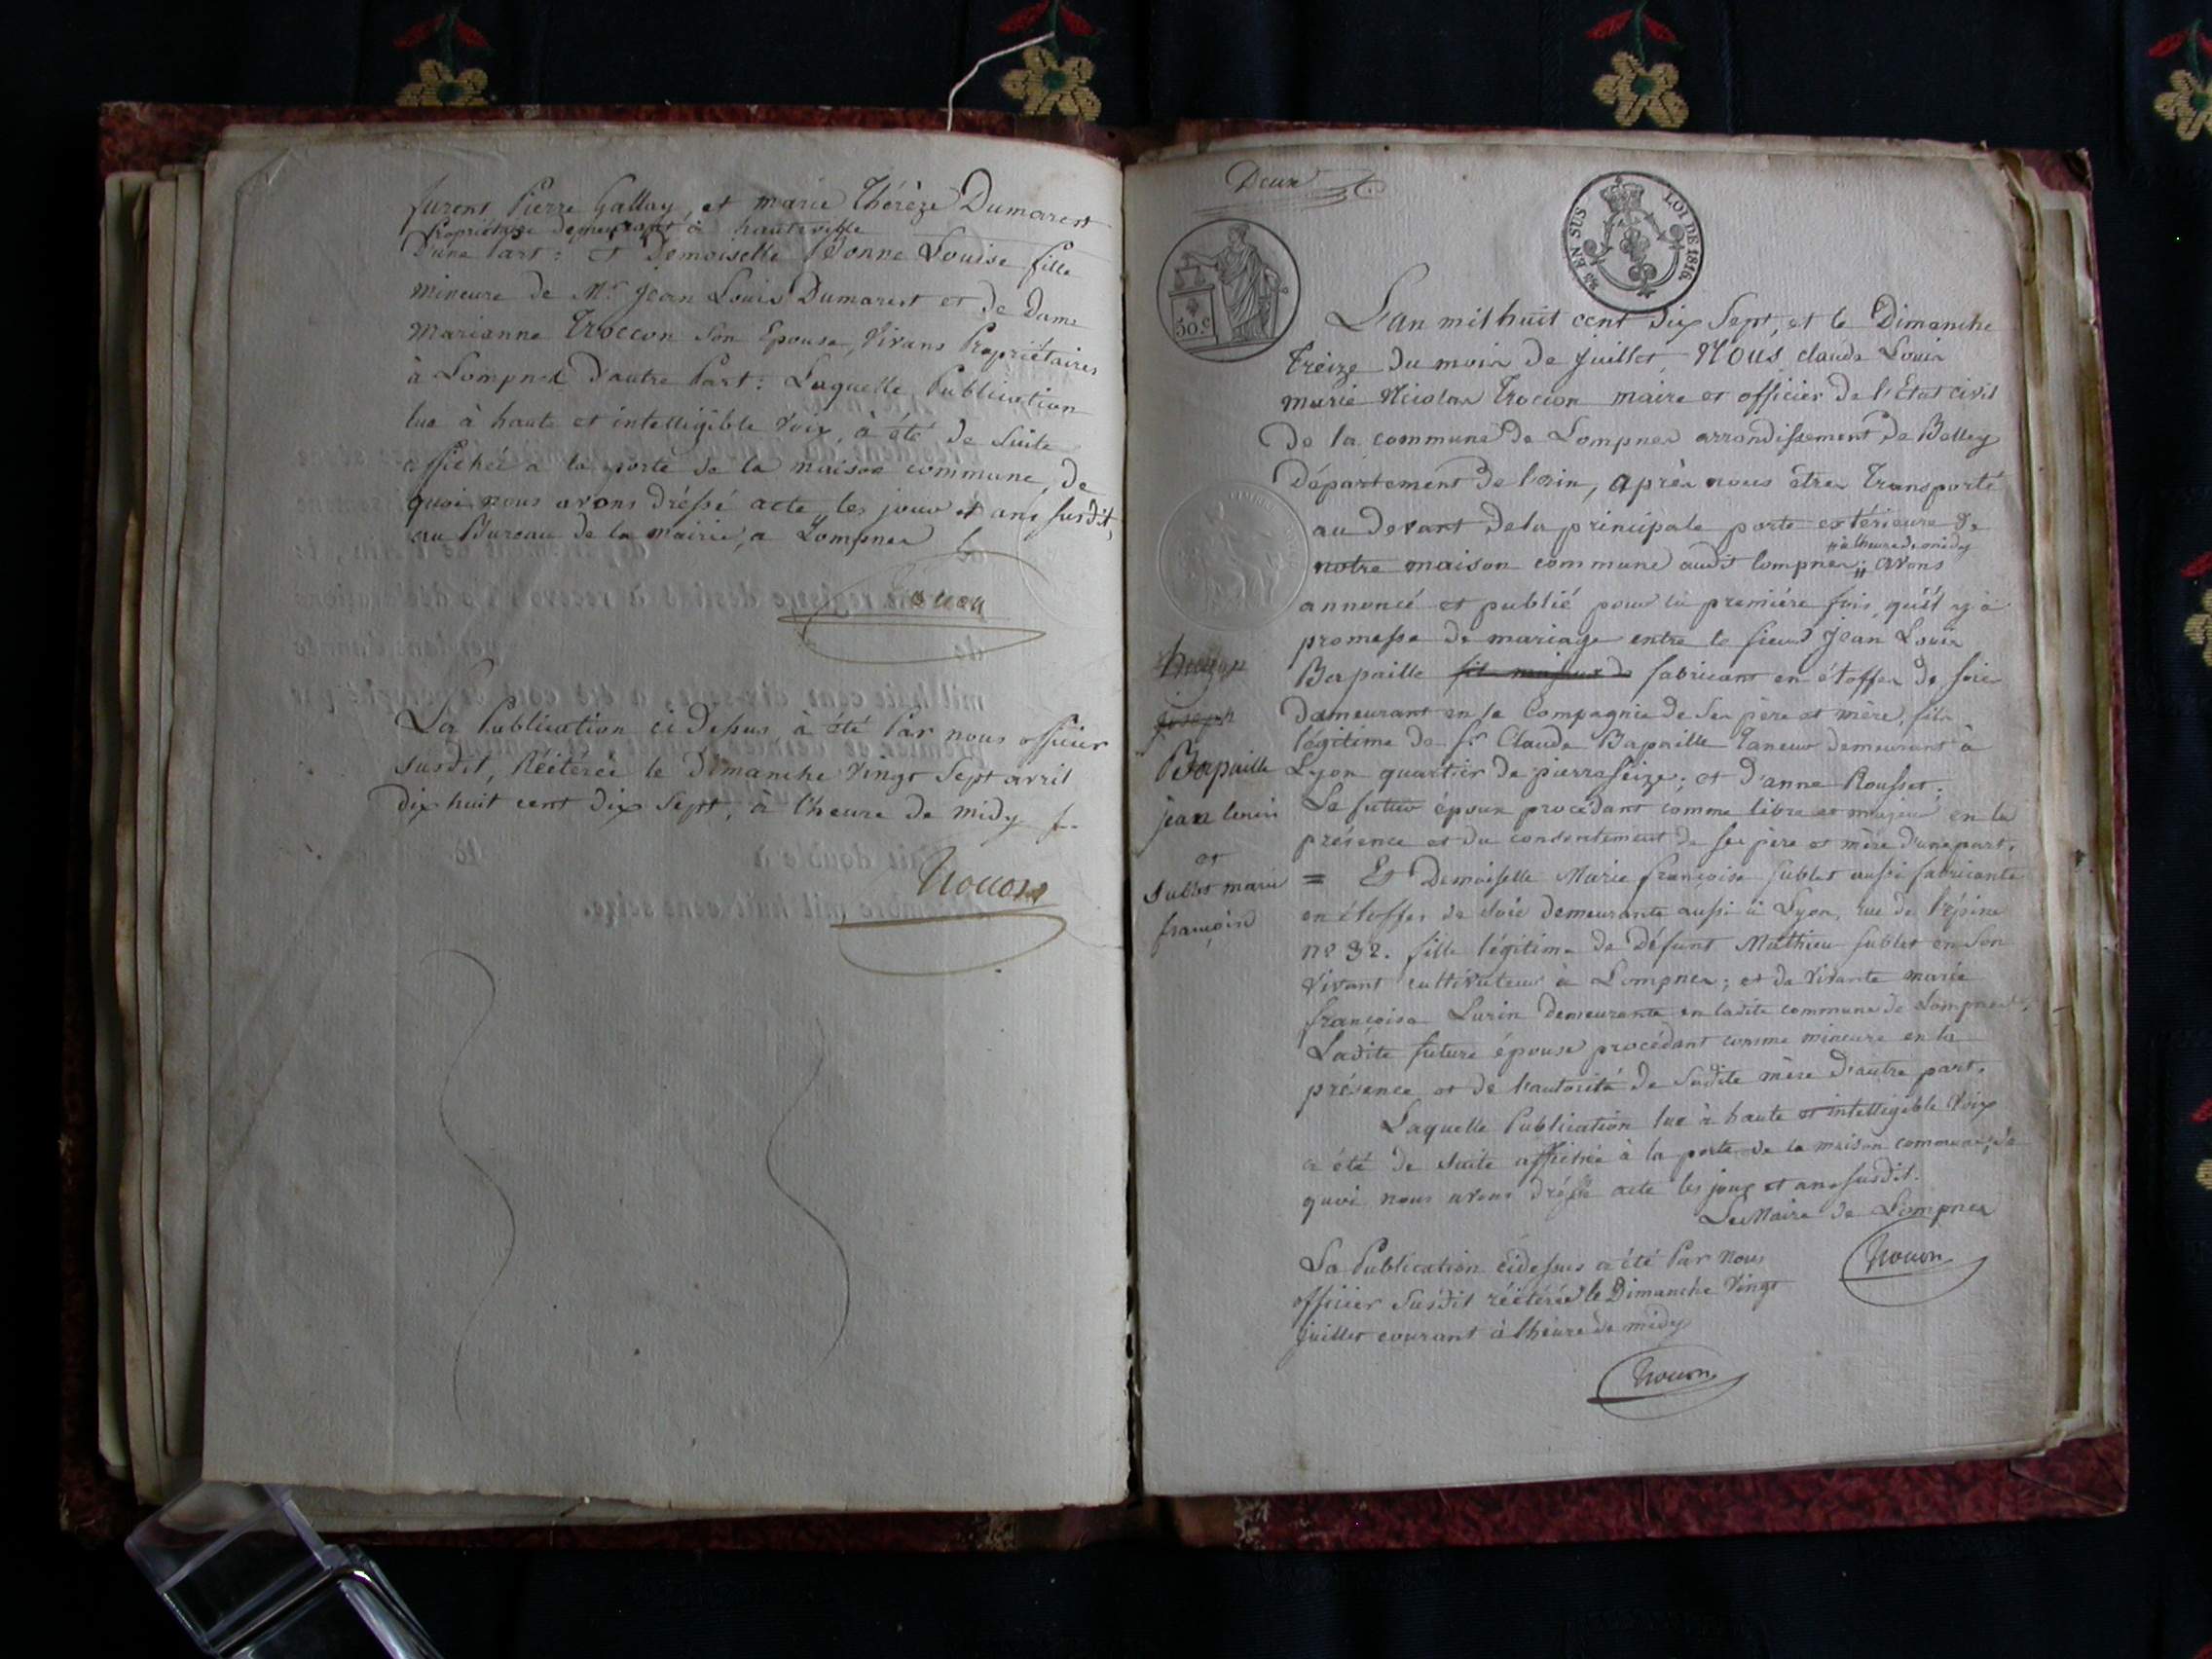 furent Pierre Gallay, et marie Thérèze Dumarest
Propriétaire demeurant à hauteville
D'une Part: et Demoiselle Bonne Louise fille
mineure de Mr. Jean Louis Dumarest et de Dame
Marianne Troccon Son Epouse, Vivans Propriétaires
à Lompnes D'autre Part: Laquelle Publication
lue à haute et intelligible Voix, à été de Suite
affichée a la porte de la maison commune, de
quoi nous avons dréssé acte, les jour et ans susdit,
au Bureau de la mairie, a Lompnes
La Publication ci Dessus, à été Par nous officier
susdit, Réitérée le Dimanche Vingt Sept avril
dix huit cent Dix Sept, à l'heure de midy
Trocon
Deux
50.c
25 EN SUS
LOI DE 1816.
L'an mil huit cent Dix Sept, et le Dimanche
Treize du mois de juillet, NOUS, claude Louis
marie Nicolas Trocon maire et officier de l'Etat civil
De la commune de Lompnes arrondissement de Belley
Département De l'ain, après nous être Transporté
au Devant De la principale porte extérieure De
" à l'heure de midy
notre maison commune audit Lompnes; " avons
annoncé et publié pour la première fois, qu'il y a
promesse de mariage entre le sieur Jean Louis
Bapaille fils majeur de fabricant en étoffes De soie
Demeurant en la Compagnie de Ses père et mère, fils
légitime De Sr. Claude Bapaille Taneur demeurant à
Lyon quartier De pierrescize; et D'anne Rousset;
Le futur époux procédant comme libre et majeur en la
présence et du consentement De Ses père et mère D'une part.
= Et Demoiselle Marie françoise Sublet aussi fabricante
en étoffes de Soie Demeurante aussi à Lyon, rue de l'épine
no. 32. fille légitime De Défunt Mathieu Sublet en Son
Vivant cultivateur à Lompnes; et De Vivante marie
françoise Lurin Demeurante en ladite commune De Lompnes,
Ladite future épouse procédant comme mineure en la
présence et De l'autorité De Sadite mère D'autre part.
Laquelle Publication lue à haute et intelligible Voix
a été De Suite affichée à la porte De la maison commune, de
quoi nous avons Dréssé acte les jour et an susdit.
Le Maire De Lompnes
Trocon
joseph
Bapaille
jean louis
et
Sublet marie
françoise
La Publication ci dessus a été Par Nous
officier Susdit réitérée le Dimanche Vingt
juillet courant à l'heure De midy
Trocon